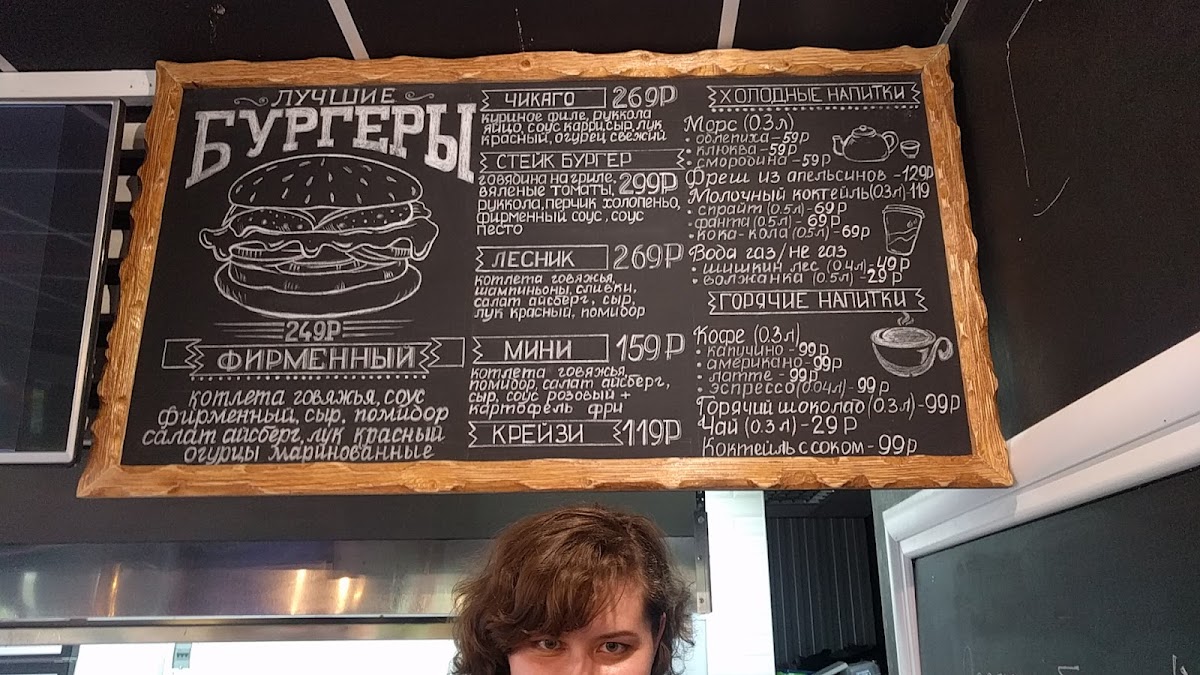 ЛУЧШИЕ
БУРГЕРЫ
249Р
ФИРМЕННЫЙ
котлета говяжья, соус
фирменный, сыр, помидор
салат айсберг, лук красный
огурцы маринованные
ЧИКАГО 269Р
кириное филе, руккола
яйцо, соус карри, сыр, лук
красный, огурец свежий
СТЕЙК БУРГЕР
говядина на гриле, 299Р
вяленые томаты,
руккола, перчик холопеньо,
фирменный соус, соус
песто
ЛЕСНИК 269Р
котлета говяжья,
шампиньоны, сливки,
салат айсберг, сыр,
лук красный, помидор
МИНИ 159Р
котлета говяжья,
помидор, салат айсберг,
сыр, соус розовый +
картофель фри
КРЕЙЗИ 119Р
ХОЛОДНЫЕ НАПИТКИ
Морс (0.3л)
• облепиха - 59р
• клюква - 59р
• смородина - 59р
Фреш из апельсинов - 129р
Молочный коктейль (0.3л) - 119
• спрайт (0.5л) - 69р
• фанта (0.5л) - 69р
• кока-кола (0.5л) - 69р
Вода газ/не газ
• шишкин лес (0.4л) - 49р
• волжанка (0.5л) - 29р
ГОРЯЧИЕ НАПИТКИ
Кофе (0.3л)
• капучино - 99р
• американо - 99р
• латте - 99р
• эспрессо (0.04л) - 99р
Горячий шоколад (0.3л) - 99р
Чай (0.3л) - 29р
Коктейль с соком - 99р